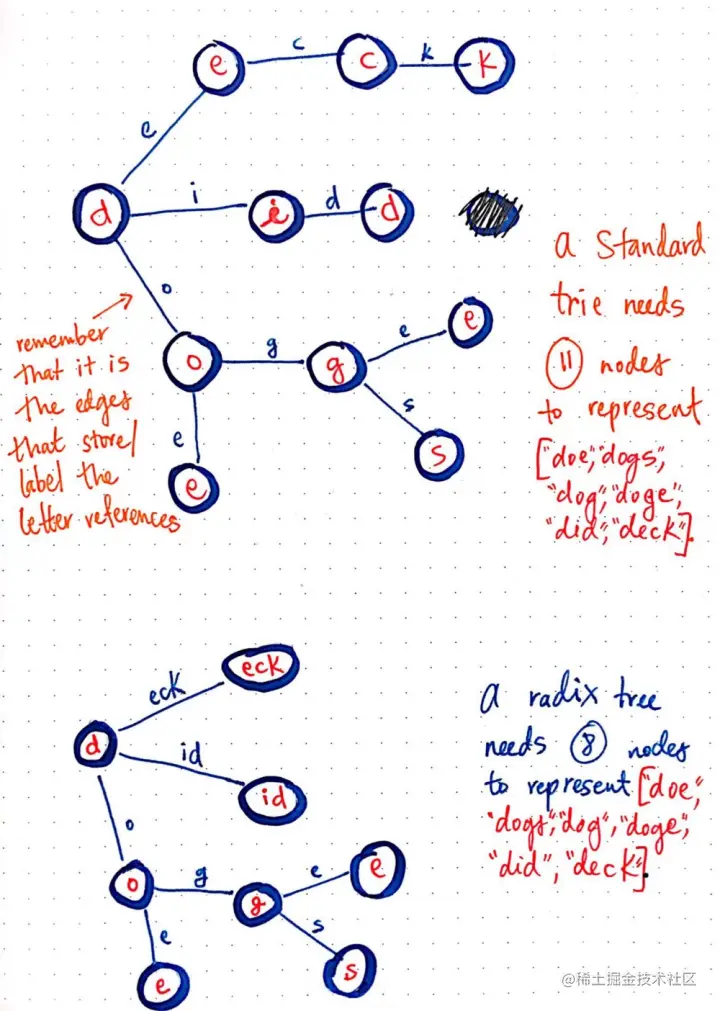 c
k
e
c
k
e
i
d
d
i
d
o
g
e
e
o
g
e
s
s
e
remember
that it is
the edges
that store/
label the
letter references
a standard
trie needs
11 nodes
to represent
["doe", "dogs",
"dog", "doge",
"did", "deck"].
eck
eck
d
id
id
o
g
e
e
o
g
e
s
s
e
a radix tree
needs 8 nodes
to represent ["doe",
"dogs", "dog", "doge",
"did", "deck"].
@稀土掘金技术社区